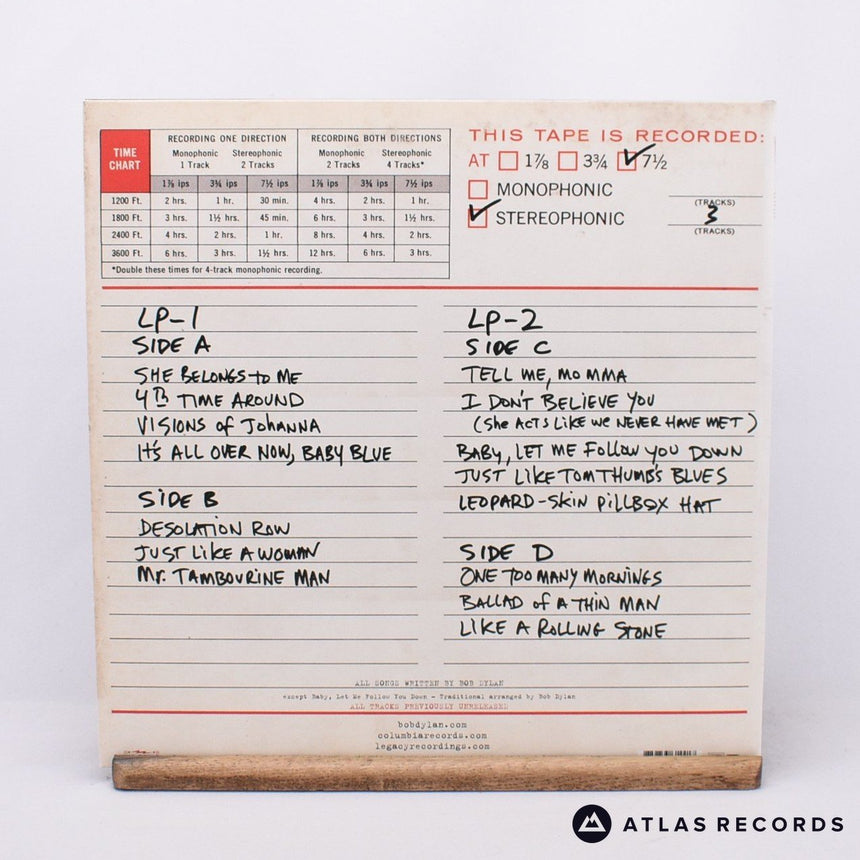 TIME CHART
RECORDING ONE DIRECTION RECORDING BOTH DIRECTIONS
Monophonic 1 Track Stereophonic 2 Tracks Monophonic 2 Tracks Stereophonic 4 Tracks*
1⅞ ips 3¾ ips 7½ ips 1⅞ ips 3¾ ips 7½ ips
1200 Ft. 2 hrs. 1 hr. 30 min. 4 hrs. 2 hrs. 1 hr.
1800 Ft. 3 hrs. 1½ hrs. 45 min. 6 hrs. 3 hrs. 1½ hrs.
2400 Ft. 4 hrs. 2 hrs. 1 hr. 8 hrs. 4 hrs. 2 hrs.
3600 Ft. 6 hrs. 3 hrs. 1½ hrs. 12 hrs. 6 hrs. 3 hrs.
*Double these times for 4-track monophonic recording.
THIS TAPE IS RECORDED:
AT 1⅞ 3¾ 7½
MONOPHONIC
(TRACKS)
STEREOPHONIC 3
(TRACKS)
LP-1
SIDE A
SHE BELONGS to ME
4th TIME AROUND
VISIONS of JOHANNA
It's ALL OVER NOW, BABY BLUE
SIDE B
DESOLATION ROW
JUST LIKE A WOMAN
Mr. TAMBOURINE MAN
LP-2
SIDE C
TELL ME, MOMMA
I DON'T BELIEVE YOU
(She ACTS LIKE WE NEVER HAVE MET)
BABY, LET ME FOLLOW YOU DOWN
JUST LIKE TOM THUMB'S BLUES
LEOPARD-SKIN PILLBOX HAT
SIDE D
ONE TOO MANY MORNINGS
BALLAD of A THIN MAN
LIKE A ROLLING STONE
ALL SONGS WRITTEN BY BOB DYLAN
except Baby, Let Me Follow You Down - Traditional arranged by Bob Dylan
ALL TRACKS PREVIOUSLY UNRELEASED
bobdylan.com
columbiarecords.com
legacyrecordings.com
ATLAS RECORDS